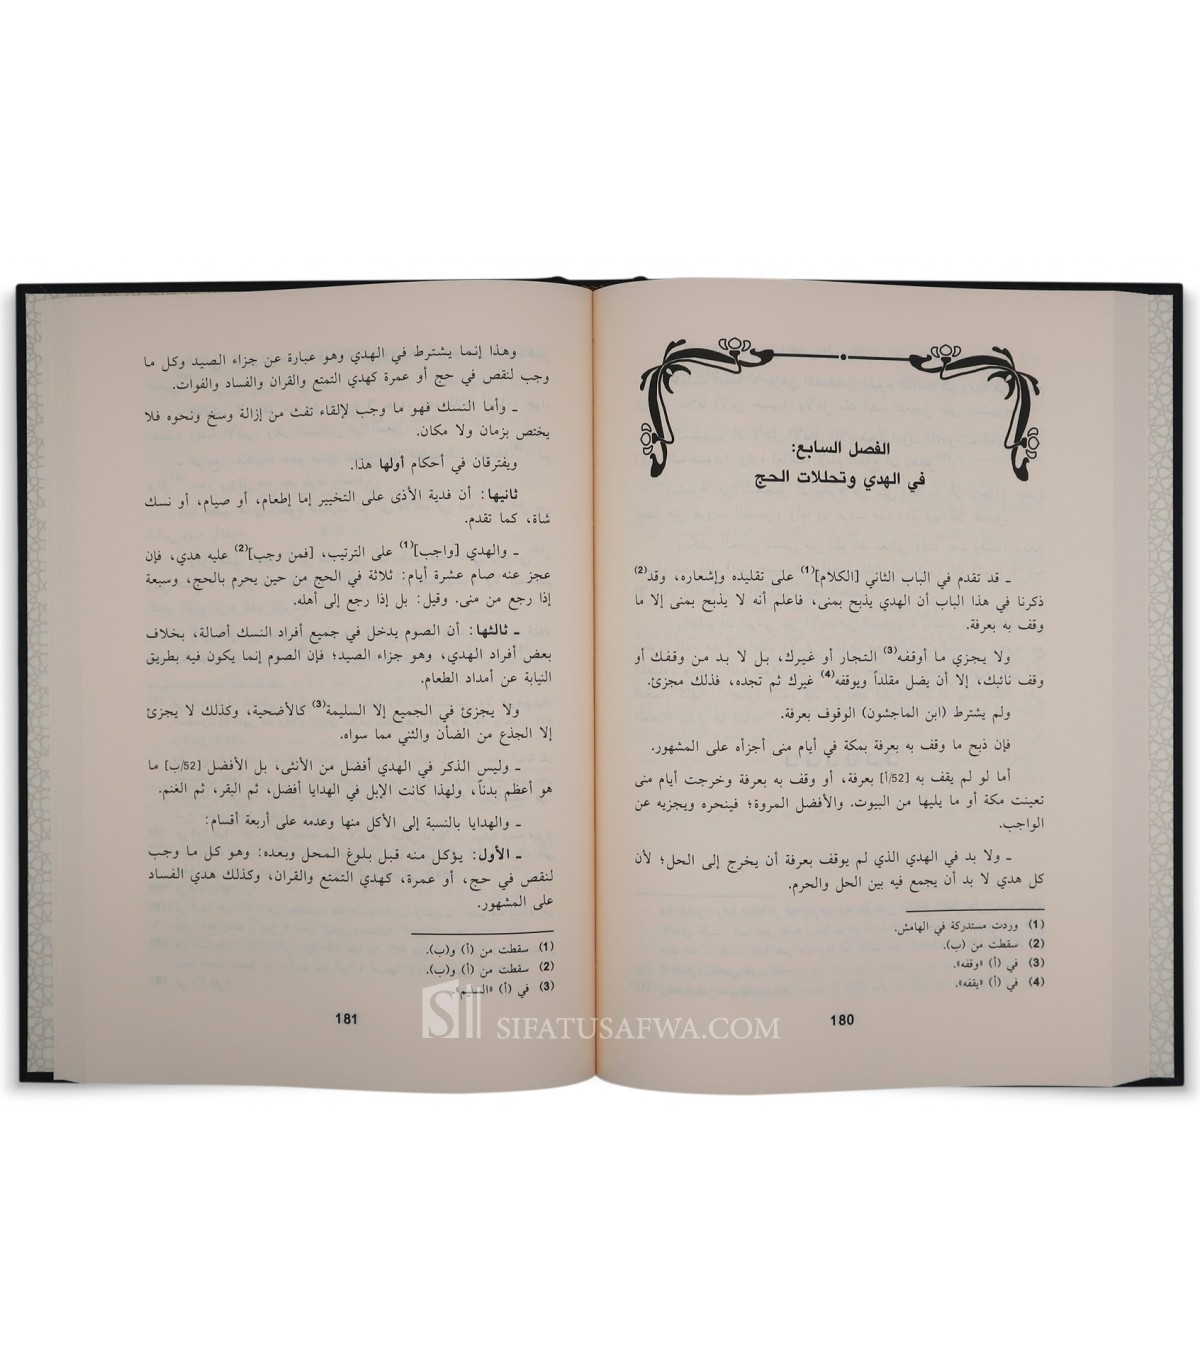 الفصل السابع:
في الهدي وتحللات الحج
ـ قد تقدم في الباب الثاني [الكلام](1) على تقليده وإشعاره، وقد(2)
ذكرنا في هذا الباب أن الهدي يذبح بمنى، فاعلم أنه لا يذبح بمنى إلا ما
وقف به بعرفة.
ولا يجزي ما أوقفه(3) التجار أو غيرك، بل لا بد من وقفك أو
وقف نائبك، إلا أن يضل مقلداً ويوقفه(4) غيرك ثم تجده، فذلك مجزئ.
ولم يشترط (ابن الماجشون) الوقوف بعرفة.
فإن ذبح ما وقف به بعرفة بمكة في أيام منى أجزأه على المشهور.
أما لو لم يقف به [52/أ] بعرفة، أو وقف به بعرفة وخرجت أيام منى
تعينت مكة أو ما يليها من البيوت. والأفضل المروة؛ فينحره ويجزيه عن
الواجب.
ـ ولا بد في الهدي الذي لم يوقف بعرفة أن يخرج إلى الحل؛ لأن
كل هدي لا بد أن يجمع فيه بين الحل والحرم.
(1) وردت مستدركة في الهامش.
(2) سقطت من (ب).
(3) في (أ) «وقفه».
(4) في (أ) «يقفه».
180
وهذا إنما يشترط في الهدي وهو عبارة عن جزاء الصيد وكل ما
وجب لنقص في حج أو عمرة كهدي التمتع والقران والفساد والفوات.
ـ وأما النسك فهو ما وجب لإلقاء تفث من إزالة وسخ ونحوه فلا
يختص بزمان ولا مكان.
ويفترقان في أحكام أولها هذا.
ثانيها: أن فدية الأذى على التخيير إما إطعام، أو صيام، أو نسك
شاة، كما تقدم.
ـ والهدي [واجب](1) على الترتيب، [فمن وجب](2) عليه هدي، فإن
عجز عنه صام عشرة أيام: ثلاثة في الحج من حين يحرم بالحج، وسبعة
إذا رجع من منى. وقيل: بل إذا رجع إلى أهله.
ـ ثالثها: أن الصوم يدخل في جميع أفراد النسك أصالة، بخلاف
بعض أفراد الهدي، وهو جزاء الصيد؛ فإن الصوم إنما يكون فيه بطريق
النيابة عن أمداد الطعام.
ولا يجزئ في الجميع إلا السليمة(3) كالأضحية، وكذلك لا يجزئ
إلا الجذع من الضأن والثني مما سواه.
ـ وليس الذكر في الهدي أفضل من الأنثى، بل الأفضل [52/ب] ما
هو أعظم بدناً، ولهذا كانت الإبل في الهدايا أفضل، ثم البقر، ثم الغنم.
ـ والهدايا بالنسبة إلى الأكل منها وعدمه على أربعة أقسام:
ـ الأول: يؤكل منه قبل بلوغ المحل وبعده: وهو كل ما وجب
لنقص في حج، أو عمرة، كهدي التمتع والقران، وكذلك هدي الفساد
على المشهور.
(1) سقطت من (أ) و(ب).
(2) سقطت من (أ) و(ب).
(3) في (أ) «السليم».
181
SIFATUSAFWA.COM